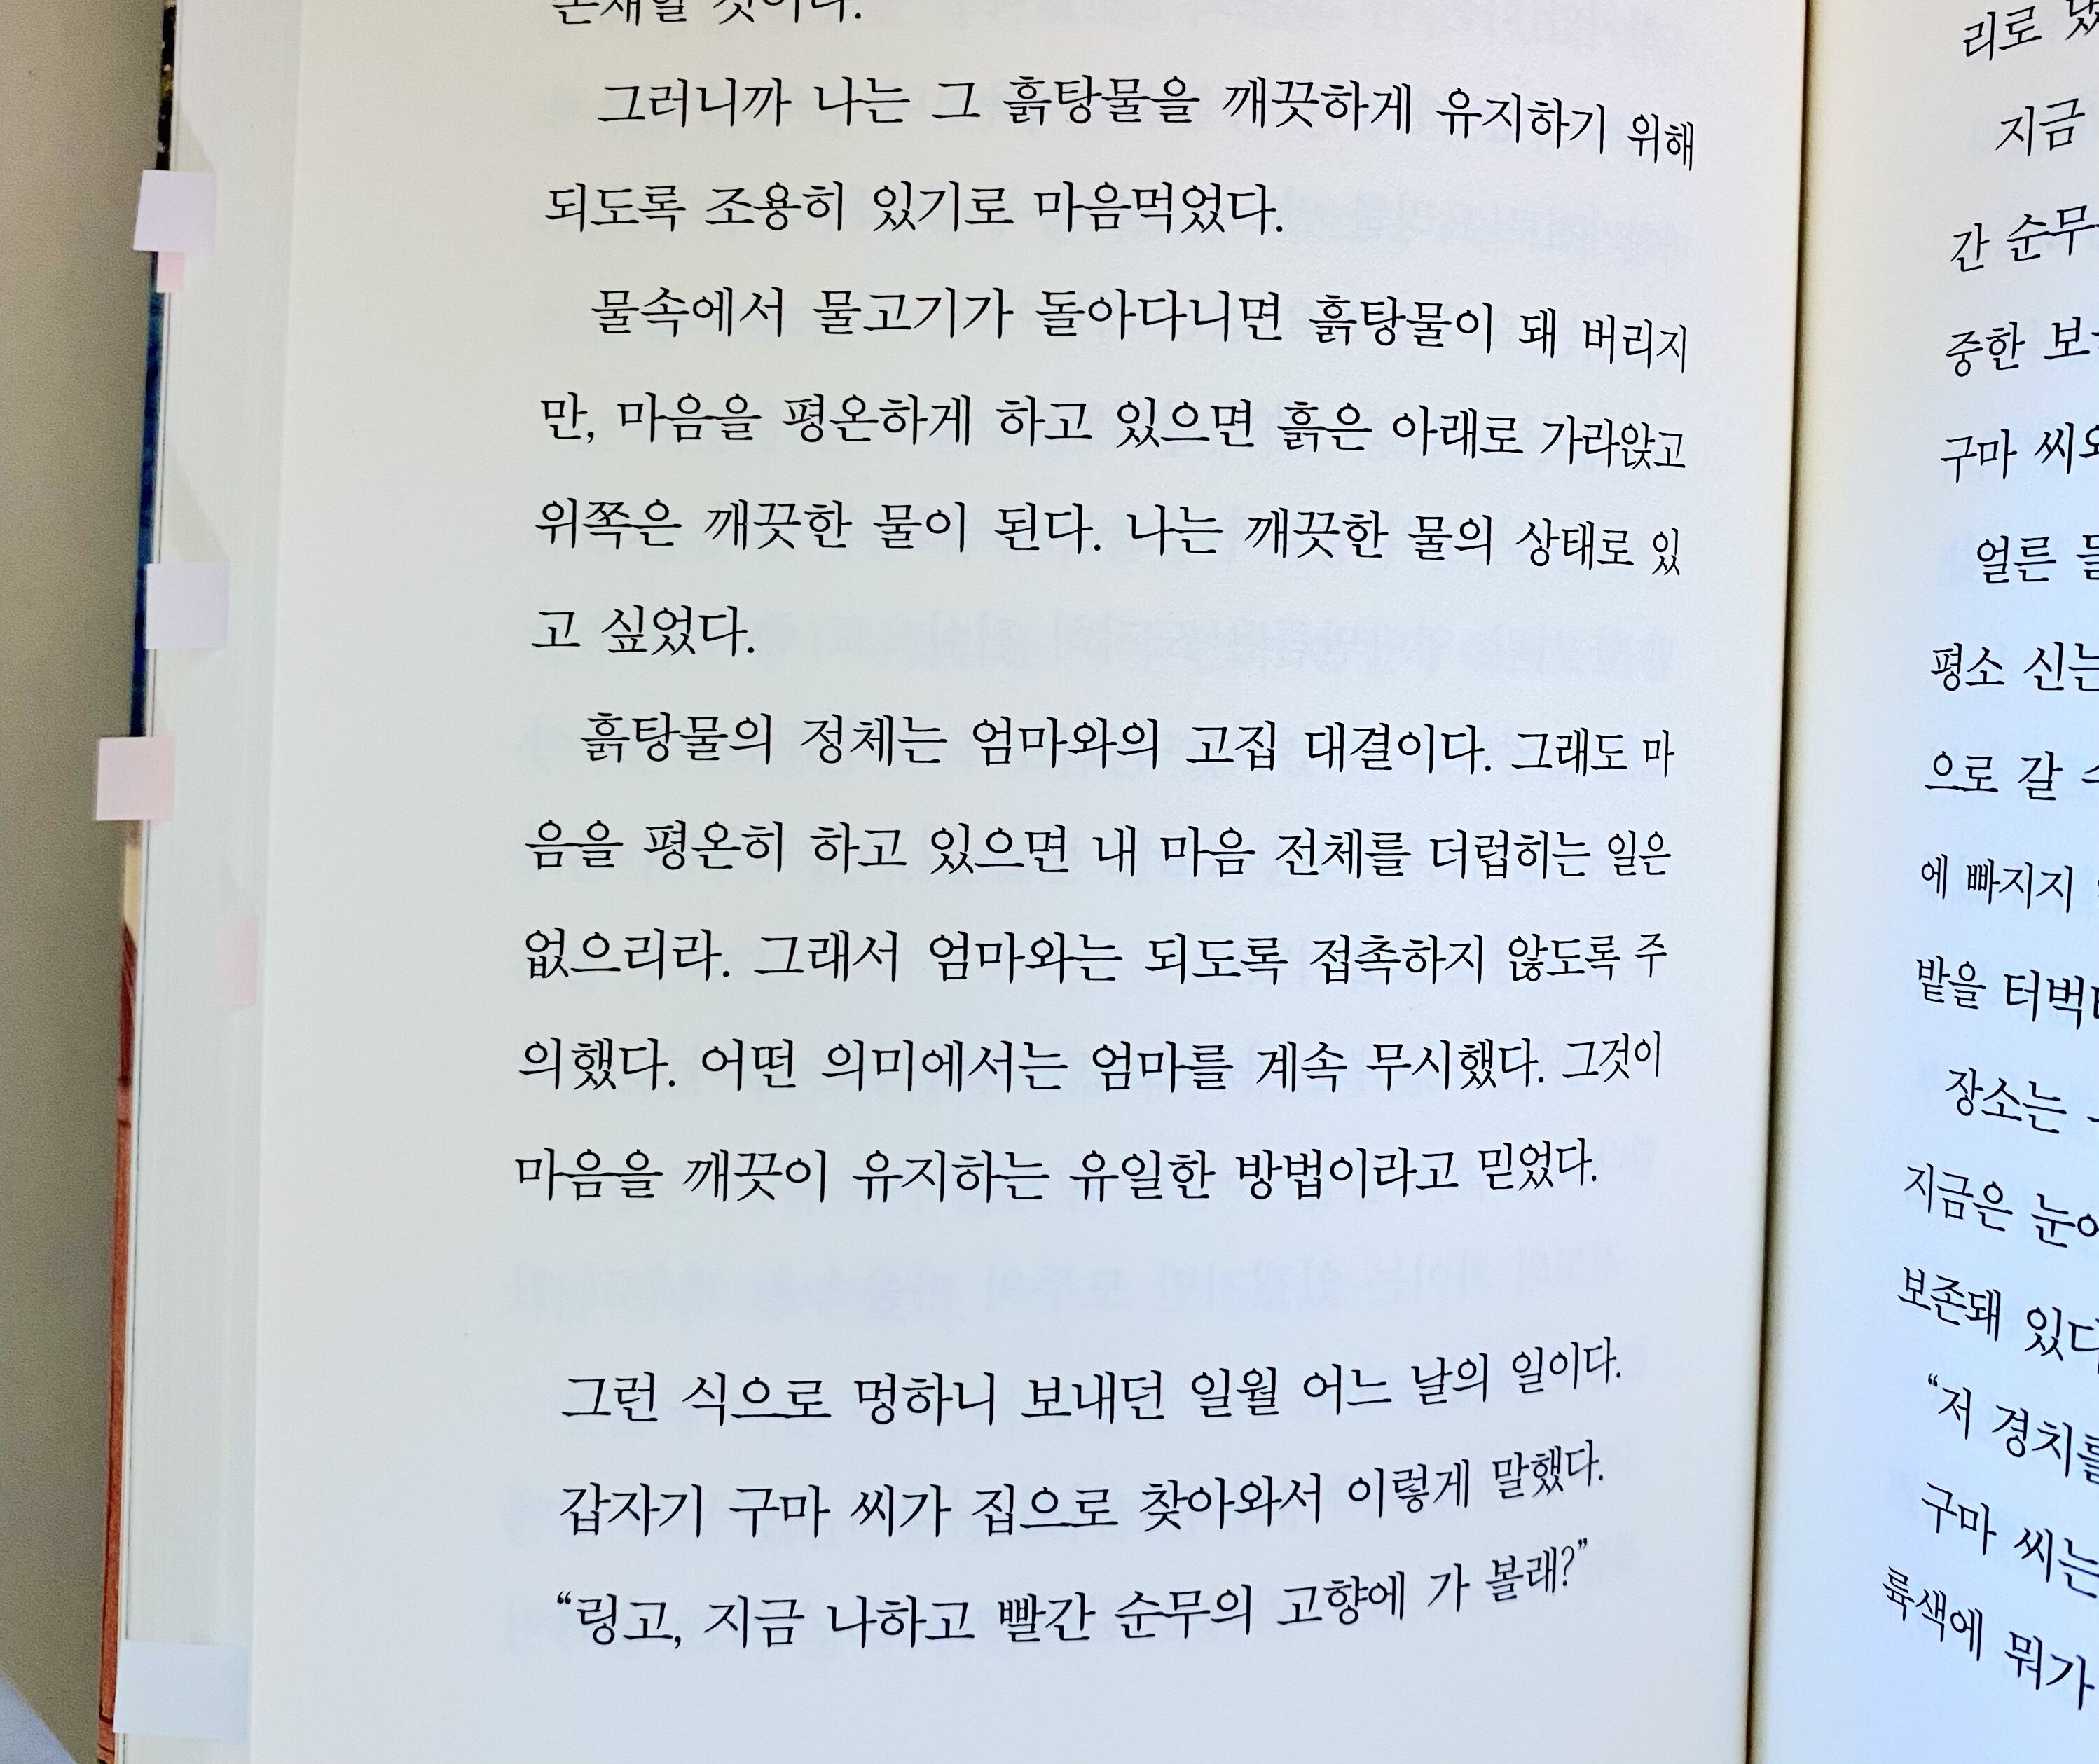 존재일 것이다.
그러니까 나는 그 흙탕물을 깨끗하게 유지하기 위해
되도록 조용히 있기로 마음먹었다.
물속에서 물고기가 돌아다니면 흙탕물이 돼 버리지
만, 마음을 평온하게 하고 있으면 흙은 아래로 가라앉고
위쪽은 깨끗한 물이 된다. 나는 깨끗한 물의 상태로 있
고 싶었다.
흙탕물의 정체는 엄마와의 고집 대결이다. 그래도 마
음을 평온히 하고 있으면 내 마음 전체를 더럽히는 일은
없으리라. 그래서 엄마와는 되도록 접촉하지 않도록 주
의했다. 어떤 의미에서는 엄마를 계속 무시했다. 그것이
마음을 깨끗이 유지하는 유일한 방법이라고 믿었다.
그런 식으로 멍하니 보내던 일월 어느 날의 일이다.
갑자기 구마 씨가 집으로 찾아와서 이렇게 말했다.
“링고, 지금 나하고 빨간 순무의 고향에 가 볼래?”
리로
지금
간 순무
중한
구마
얼른
평소 신는
으로 갈
에 빠지지
밭을
장소는
지금은
보존돼
“저 경치를
구마 씨는
륙색에 뭐가